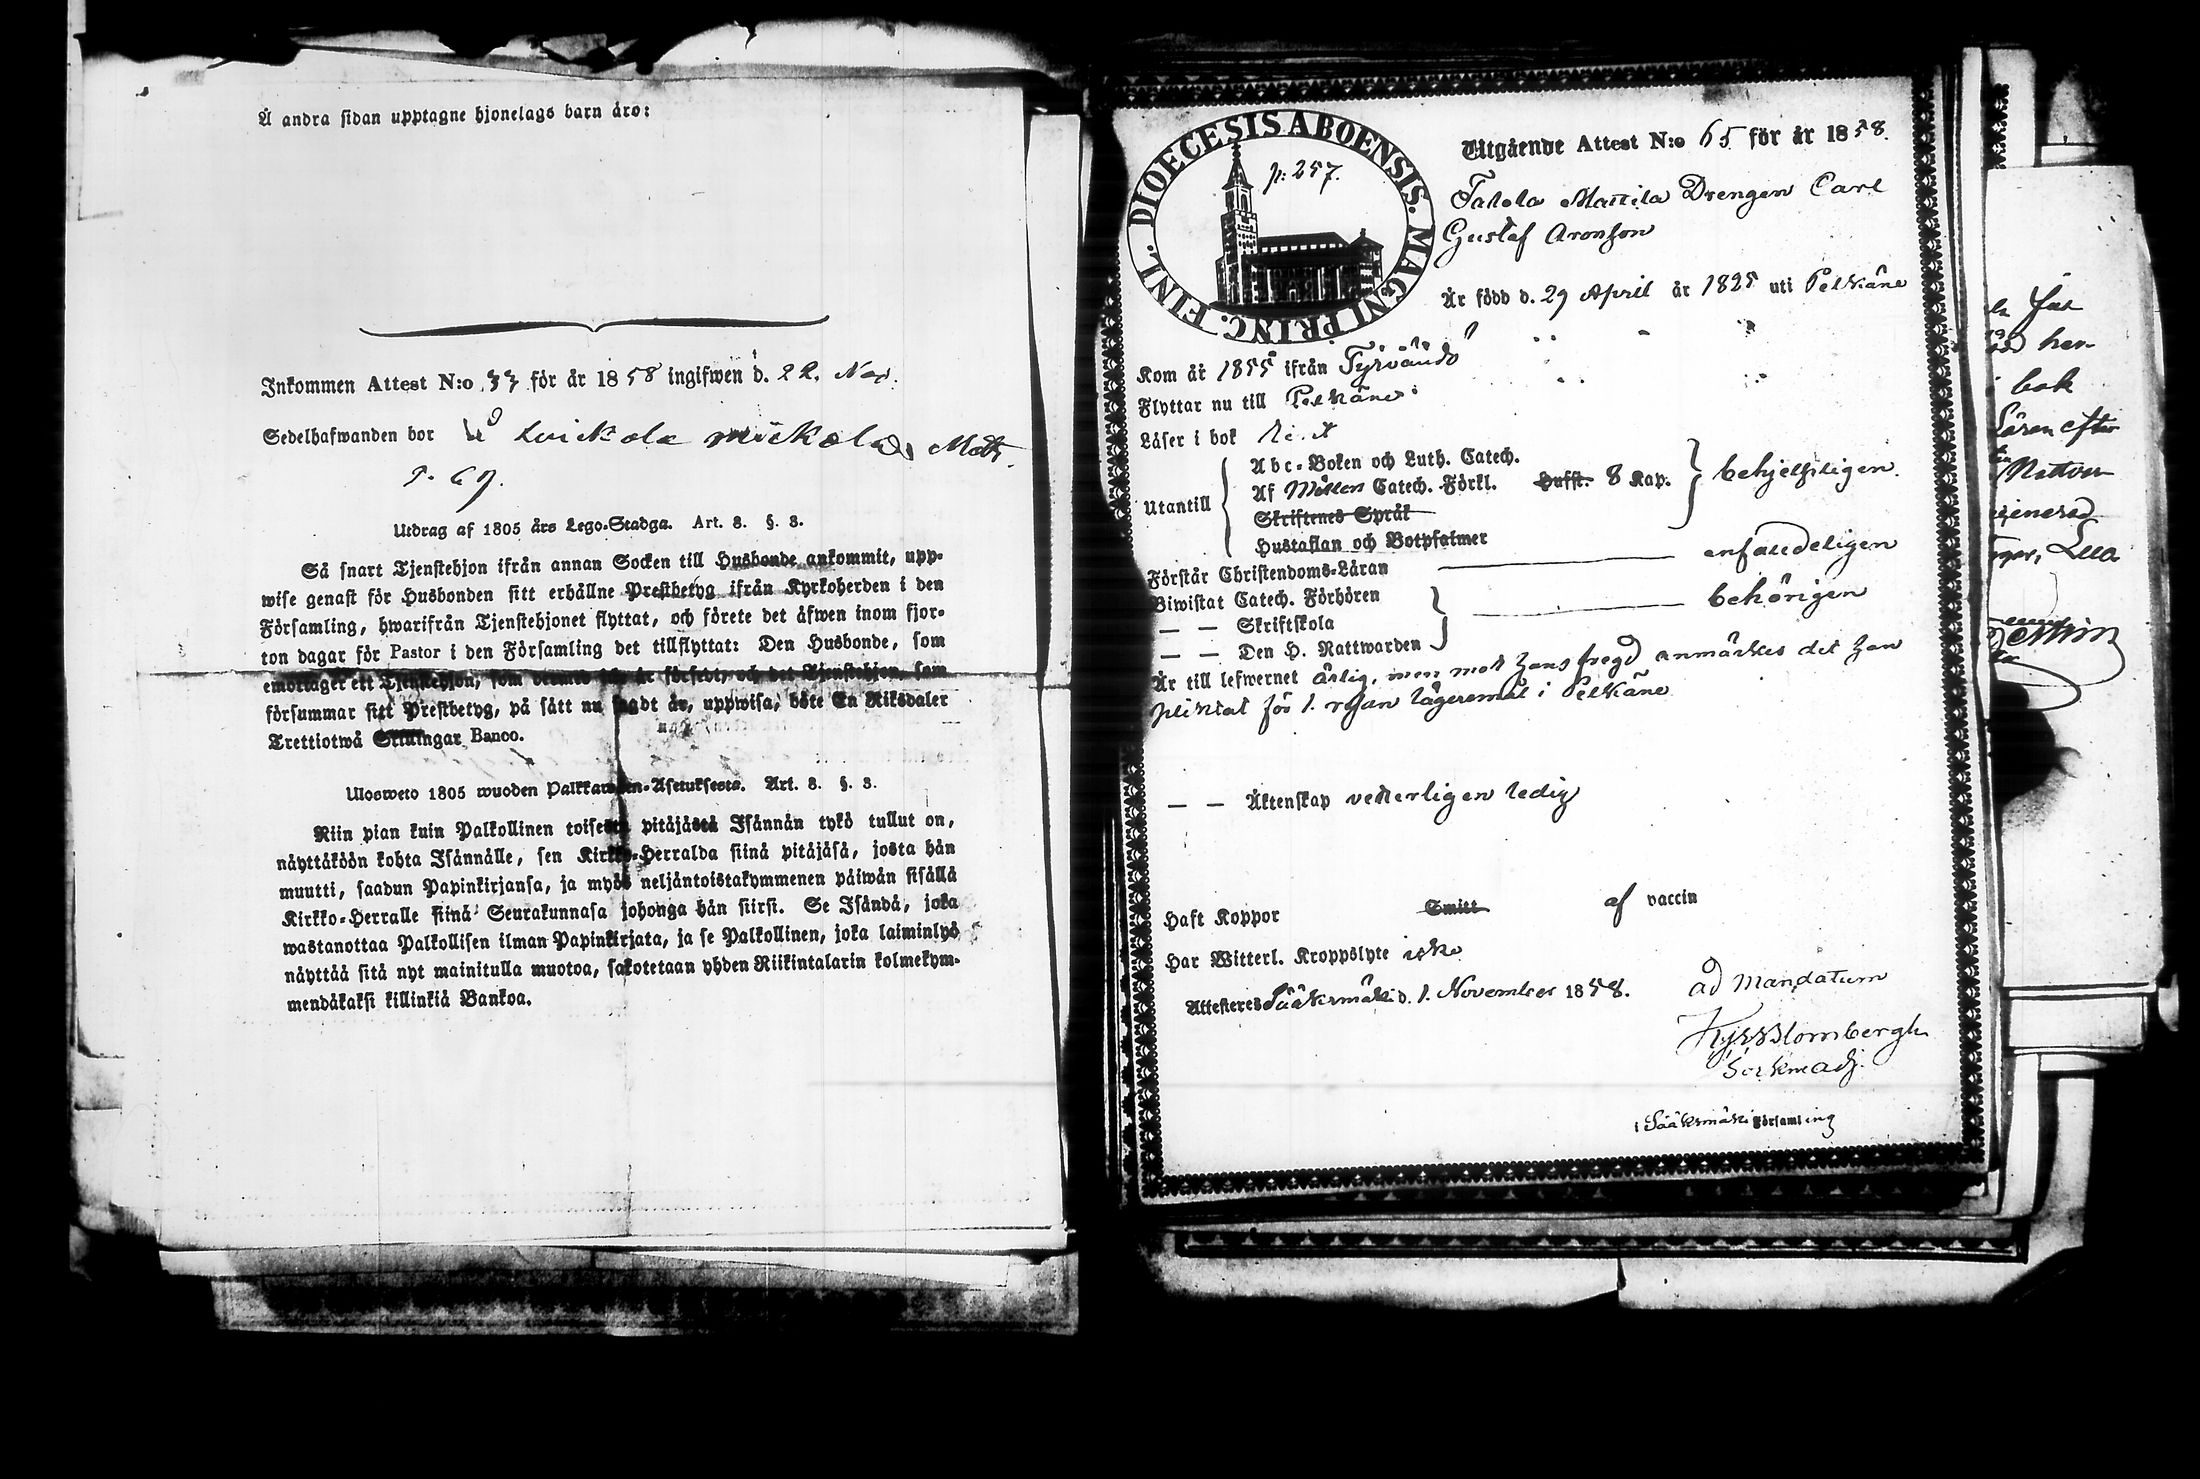 Å andra sidan upptagne hjonelags barn äro:
Inkommen Attest N:o 33 för år 1858 ingifwen d. 22. Nov.
Sedelhafwanden bor
p. 67.
Utdrag af 1805 års Lego-Stadga. Art. 8. §. 3.
Så snart Tjenstehjon ifrån annan Socken till Husbonde ankommit, upp-
wise genast för Husbonden sitt erhållne Prestbetyg ifrån Kyrkoherden i den
Församling, hwarifrån Tjenstehjonet flyttat, och förete det äfwen inom fjor-
ton dagar för Pastor i den Församling det tillflyttat: Den Husbonde, som
emottager ett Tjenstehjon, som dermed ej är försedt, och det Tjenstehjon, som
försummar sitt Prestbetyg, på sätt nu sagdt är, uppwisa, böte En Riksdaler
Trettiotwå Skillingar Banco.
Ulosweto 1805 wuoden Palkkawäen-Asetuksesta. Art. 8. §. 3.
Niin pian kuin Palkollinen toisesta pitäjästä Isännän tykö tullut on,
näyttäköön kohta Isännälle, sen Kirkko-Herralda siinä pitäjäsä, josta hän
muutti, saadun Papinkirjansa, ja myös neljäntoistakymmenen päiwän sisällä
Kirkko-Herralle siinä Seurakunnasa johonga hän siirsi. Se Isändä, joka
wastanottaa Palkollisen ilman Papinkirjata, ja se Palkollinen, joka laiminlyö
näyttää sitä nyt mainitulla muotoa, sakotetaan yhden Riikintalarin kolmekym-
mendäkaksi killinkiä Bankoa.
DIOECESIS ABOENSIS. MAGNI PRINC. FINL.
p: 257.
Utgående Attest N:o 65 för år 1858.
Mattila Drengen Carl
Gustaf Aronson
Är född d. 29 April år 1825 uti Pelkäne
Kom år 1855 ifrån Tyrvändö
Flyttar nu till Pelkäne
Läser i bok
Utantill
Abc-Boken och Luth. Catech.
Af Möllers Catech. Förkl. Hufst. 8 Kap.
behjelpligen.
Skriftenes Språk
Hustaflan och Botpsalmer
Förstår Christendoms-Läran enfaldeligen
Biwistat Catech. Förhören behörigen
— — Skriftskola
— — Den H. Nattwarden
Är till lefwernet ärlig, men mot hans fregd anmärkes det han
pliktat för 1. resan lägersmål i Pelkäne
— — Äktenskap veterligen ledig
Haft Koppor Smitt af vaccin
Har Witterl. Kroppslyte icke
Attesteres Sääksmäki d. 1. November 1858.
ad mandatum
Blombergh
i Sääksmäki Församling